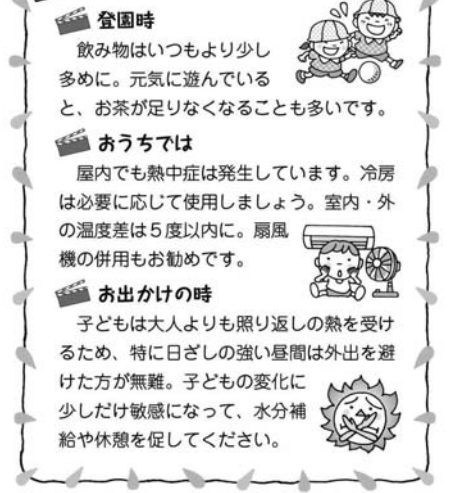 登園時
飲み物はいつもより少し
多めに。元気に遊んでいる
と、お茶が足りなくなることも多いです。
おうちでは
屋内でも熱中症は発生しています。冷房
は必要に応じて使用しましょう。室内・外
の温度差は５度以内に。扇風
機の併用もお勧めです。
お出かけの時
子どもは大人よりも照り返しの熱を受け
るため、特に日ざしの強い昼間は外出を避
けた方が無難。子どもの変化に
少しだけ敏感になって、水分補
給や休憩を促してください。